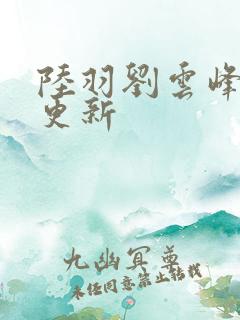 陸羽劉雲峰
更新
九幽冥尊
未经同意禁止转载